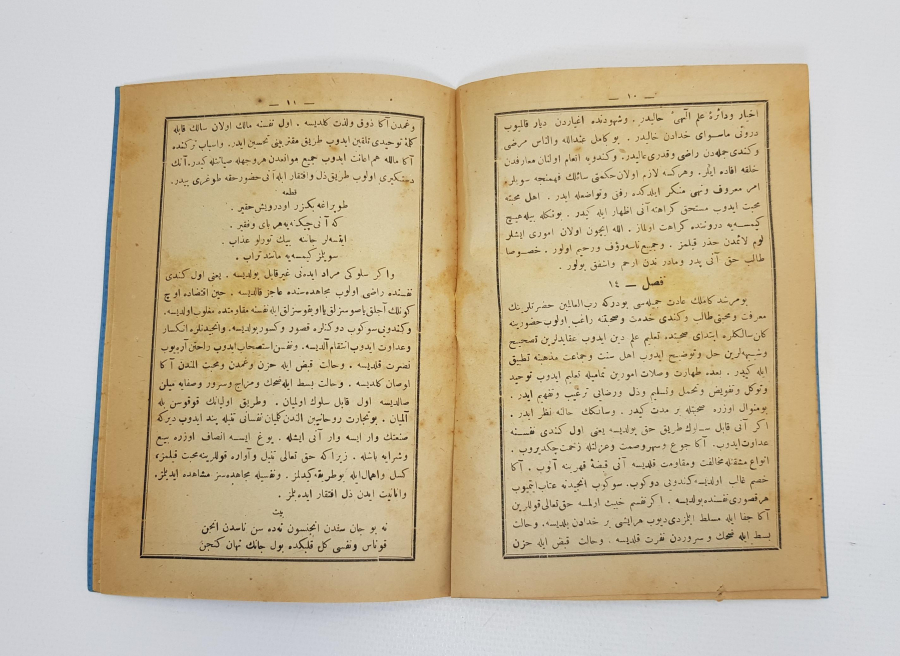 — ١٠ —
اخبار ودائرۀ علم الهی حالیدر . وشهودنده اغیاردن دیار قالمیوب
درونی ماسوای خدادن خالیدر . بو كامل عندالله والناس مرضی
وكندی جمله‌دن راضی وقدری عالیدر. وكندویه انعام اولنان معارفدن
خلقه افاده ایلر. وهركسه لازم اولان حكمتی سائلك فهمنجه سویلر.
امر معروف ونهی منكر ایلدكده رفق وتواضعله ایدر . اهل محبته
محبت ایدوب مستحق كراهته آنی اظهار ایله كیدر . بونكله بیله هیچ
كیمسه‌یه دروننده كراهت اولماز . الله ایچون اولان اموری ایشلر
لوم لائمدن حذر قیلمز . وجمیع ناسه رؤف ورحیم اولور . خصوصا
طالب حق آنی پدر ومادرندن ارحم واشفق بولور .
فصل — ١٤
بو مرشد كاملك عادت جمیله‌سی بودركه رب العالمین حضرتلرینك
معرفت ومحبتی طالب وكندی خدمت وصحبتنه راغب اولوب حضورینه
كلن سالكلره ابتدای صحبتده تعلیم علم دین ایدوب عقایدلرین تصحیح
وشبهه‌لرین حل وتوضیح ایدوب اهل سنت وجماعت مذهبنه تطبیق
ایله كیدر . بعده طهارت وصلات امورین تمامیله تعلیم ایدوب توحید
وتوكل وتفویض وتحمل وتسلیم وذل ورضایی ترغیب وتفهیم ایدر .
بومنوال اوزره صحبتله بر مدت كیدر . وسالكك حالنه نظر ایدر .
اكر آنی قابل سلوك طریق حق بولدیسه یعنی اول كندی نفسنه
عداوت ایدوب. آكا جوع وسهر وصمت وعزلتله زحمت چكدیروب .
انواع مشقتله مخالفت ومقاومت قلدیسه آنی قبضۀ قهرینه آلوب . آكا
خصم غالب اولدیسه كندونی دوكوب. سوكوب انجیدنه عتاب ایتمیوب
هر قصوری نفسنده بولدیسه . اكر نفسم خبیث اولمسه حق تعالی قوللرین
آكا جفا ایله مسلط ایلمزدی دیوب هر ایشی بر خدادن بلدیسه. وحالت
بسط ایله ضحك و سروردن نفرت قلدیسه . وحالت قبض ایله حزن
— ١١ —
وغمدن آكا ذوق ولذت كلدیسه . اول نفسنه مالك اولان سالك قابله
كلمۀ توحیدی تلقین ایدوب طریق مقربینی تحسین ایدر. واسباب تركنده
آكا مالله هم اعانت ایدوب جمیع موانعدن هر وجهله صیانتله كیدر. آنك
دستگیری اولوب طریق ذل وافتقار ایله آنی حضور حقه طوغری ییدر.
قطعه
طوپراغه بكزر اودرویش حقیر .
كه آنی چیكنه‌یه هر بای وفقیر .
ایتسه‌لر جاننه بیك تورلو عذاب .
سویلمز كیمسه‌یه مانند تراب .
واكر سلوكی مراد ایده‌نی غیر قابل بولدیسه . یعنی اول كندی
نفسنده راضی اولوب مجاهده‌سنده عاجز قالدیسه . حین اقتضاده اوچ
كونلك آچلق یا صوسزلق یا اویقوسزلق ایله نفسنه مقاومتده مغلوب اولدیسه.
وكندونی سوكوب دوكنلره قصور وكسور بولدیسه. وانجیدنلره انكسار
وعداوت ایدوب انتقام آلدیسه. ونفسن استصحاب ایدوب راحتن آره‌یوب
نصرت قلدیسه . وحالت قبض ایله حزن وغمدن ومحبت المندن آكا
اوصان كلدیسه . وحالت بسط ایله ضحك ومزاح وسرور وصفایه میلن
صالدیسه اول قابل سلوك اولمیان . وطریق اولیانك قوقوسن بله
آلمیان . بو تجارت روحانیین الندن كلمیان نفسانی تنبله پند ایدوب دیركه
صنعتك وار ایسه وار آنی ایشله . یوغ ایسه انصاف اوزره بیع
وشرایه باشله . زیراكه حق تعالی تنبل وآواره قوللرینه محبت قیلمز،
كسل واهمال ایله بو طریقه كیدلمز . ونفسیله مجاهده‌سز مشاهده ایدیلمز.
وانانیت ایدن ذل افتقار ایده‌بلمز .
بیت
نه بو جان سفدن انجنسون نه‌ده سن ناسدن انجن
قو ناس ونفسی كل قلبكده بول جانك نهان كنجن